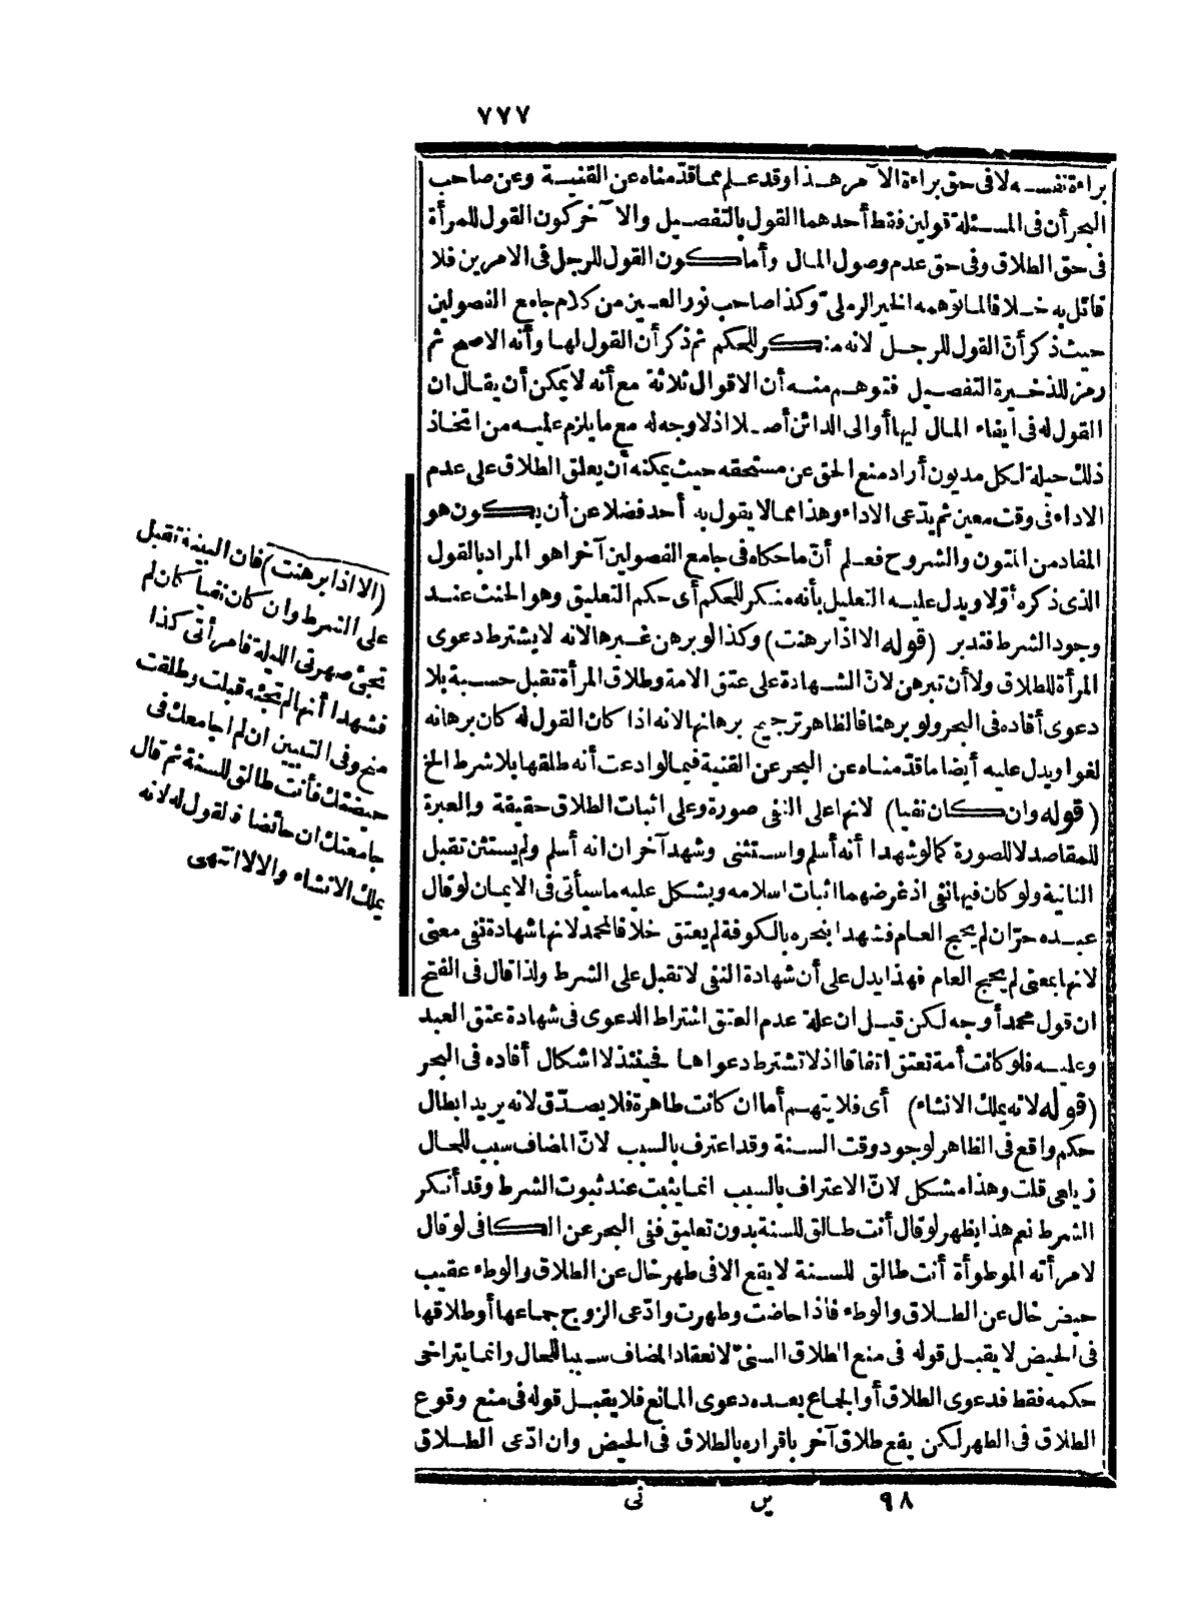 ٧٧٧
براءة نفسه لا فى حق براءة الآمر هذا وقد علم مما قدّمناه عن القنية وعن صاحب
البحر أن فى المسئلة قولين فقط أحدهما القول بالتفصيل والآخر كون القول للمرأة
فى حق الطلاق وفى حق عدم وصول المال وأما كون القول للرجل فى الامرين فلا
قائل به خلافا لما توهمه الخير الرملىّ وكذا صاحب نور العين من كلام جامع الفصولين
حيث ذكر أنّ القول للرجل لانه منكر للحكم ثم ذكر أن القول لها وأنه الاصح ثم
رمز للذخيرة التفصيل فتوهم منه أن الاقوال ثلاثة مع أنه لا يمكن أن يقال ان
القول له فى ايفاء المال اليها أو الى الدائن أصلا اذ لا وجه له مع ما يلزم عليه من اتخاذ
ذلك حيلة لكل مديون أراد منع الحق عن مستحقه حيث يمكنه أن يعلق الطلاق على عدم
الاداء فى وقت معين ثم يدّعى الاداء وهذا مما لا يقول به أحد فضلا عن أن يكون هو
المفاد من المتون والشروح فعلم أنّ ما حكاه فى جامع الفصولين آخرا هو المراد بالقول
الذى ذكره أوّلا ويدل عليه التعليل بأنه منكر للحكم أى حكم التعليق وهو الحنث عند
وجود الشرط فتدبر (قوله الا اذا برهنت) وكذا لو برهن غيرها لانه لا يشترط دعوى
المرأة للطلاق ولا أن تبرهن لانّ الشهادة على عتق الامة وطلاق المرأة تقبل حسبة بلا
دعوى أفاده فى البحر ولو برهنا فالظاهر ترجيح برهانها لانه اذا كان القول له كان برهانه
لغوا ويدل عليه أيضا ما قدّمناه عن البحر عن القنية فيما لو ادعت أنه طلقها بلا شرط الخ
(قوله وان كان نفيا) لانها على النفى صورة وعلى اثبات الطلاق حقيقة والعبرة
للمقاصد لا للصورة كما لو شهدا أنه أسلم واستثنى وشهد آخران انه أسلم ولم يستثن تقبل
الثانية ولو كان فيها نفى اذ غرضهما اثبات اسلامه ويشكل عليه ما سيأتى فى الايمان لو قال
عبده حرّ ان لم يحج العام فشهدا بنحره بالكوفة لم يعتق خلافا لمحمد لانها شهادة نفى معنى
لانها بمعنى لم يحج العام فهذا يدل على أن شهادة النفى لا تقبل على الشرط ولذا قال فى الفتح
ان قول محمد أوجه لكن قيل ان علة عدم العتق اشتراط الدعوى فى شهادة عتق العبد
وعليه فلو كانت أمة تعتق اتفاقا اذ لا تشترط دعواها فحينئذ لا اشكال أفاده فى البحر
(قوله لانه يملك الانشاء) أى فلا يتهم أما ان كانت طاهرة فلا يصدّق لانه يريد ابطال
حكم واقع فى الظاهر لوجود وقت السنة وقد اعترف بالسبب لانّ المضاف سبب للحال
زيلعى قلت وهذا مشكل لانّ الاعتراف بالسبب انما يثبت عند ثبوت الشرط وقد أنكر
الشرط نعم هذا يظهر لو قال أنت طالق للسنة بدون تعليق ففى البحر عن الكافى لو قال
لامرأته الموطوأة أنت طالق للسنة لا يقع الا فى طهر خال عن الطلاق والوطء عقيب
حيض خال عن الطلاق والوطء فاذا حاضت وطهرت وادّعى الزوج جماعها أو طلاقها
فى الحيض لا يقبل قوله فى منع الطلاق السنىّ لانعقاد المضاف سببا للحال وانما يتراخى
حكمه فقط فدعوى الطلاق أو الجماع بعده دعوى المانع فلا يقبل قوله فى منع وقوع
الطلاق فى الطهر لكن يقع طلاق آخر باقراره بالطلاق فى الحيض وان ادّعى الطلاق
٩٨ ين نى
(الا اذا برهنت) فان البينة تقبل
على الشرط وان كان نفيا كان لم
تجئ صهرتى الليلة فامرأتى كذا
فشهدا أنها لم تجئه قبلت وطلقت
منح وفى التبيين ان لم اجامعك فى
حيضتك فأنت طالق للسنة ثم قال
جامعتك ان حائضا فالقول له لانه
يملك الانشاء والا لا انتهى